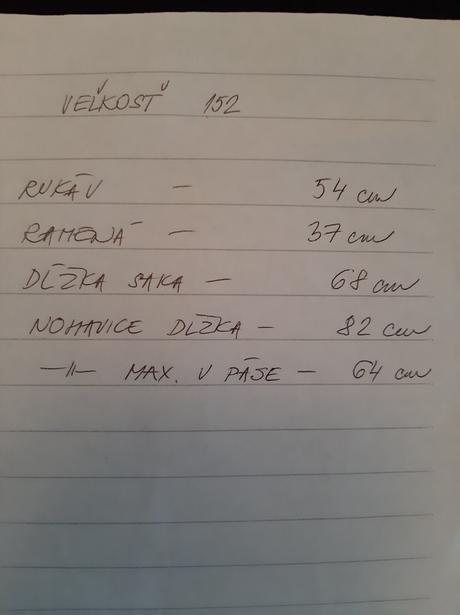 VEĽKOSŤ 152
RUKÁV – 54 cm
RAMENÁ – 37 cm
DĹŽKA SAKA – 68 cm
NOHAVICE DĹŽKA – 82 cm
–||– MAX. V PÁSE – 64 cm